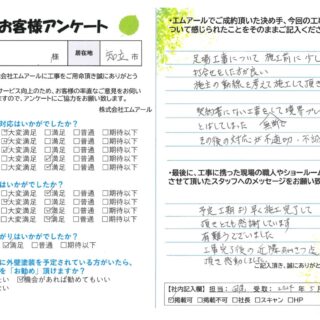 お客様アンケート
様 居住地 知立 市
株式会社エムアールに工事をご用命頂き誠にありがとう
サービス向上のため、お客様の率直なご意見をお伺い
ますので、アンケートにご協力をお願い致します。
株式会社エムアール
対応はいかがでしたか?
大変満足 満足 普通 期待以下
大変満足 満足 普通 期待以下
大変満足 満足 普通 期待以下
大変満足 満足 普通 期待以下
はいかがでしたか?
大変満足 満足 普通 期待以下
大変満足 満足 普通 期待以下
大変満足 満足 普通 期待以下
大変満足 満足 普通 期待以下
がりはいかがでしたか?
大変満足 満足 普通 期待以下
に外壁塗装を予定されている方がいたら、
を「お勧め」頂けますか?
たい 機会があれば勧めてもいい
ない
•エムアールでご成約頂いた決め手、今回の工
ついて感じられたことをそのままご記入くださ
足場工事について 施工前に少し
お会をとした方が良い
施主の目線を考えて施工して頂き
契約書にない工事をして
とばしてしまった
その後の対応が不適切・不
•最後に、工事に携った現場の職人やショールー
させて頂いたスタッフへのメッセージをお願い致
予定工期より早く施工完了して
頂きとても感謝しています
有難うございました
工事完了後の近隣
頂き感動しました
ご記入頂き、誠にありがと
【社内記入欄】 担当: 受取: 年 5 月
掲載可 掲載不可 社長 スキャン HP